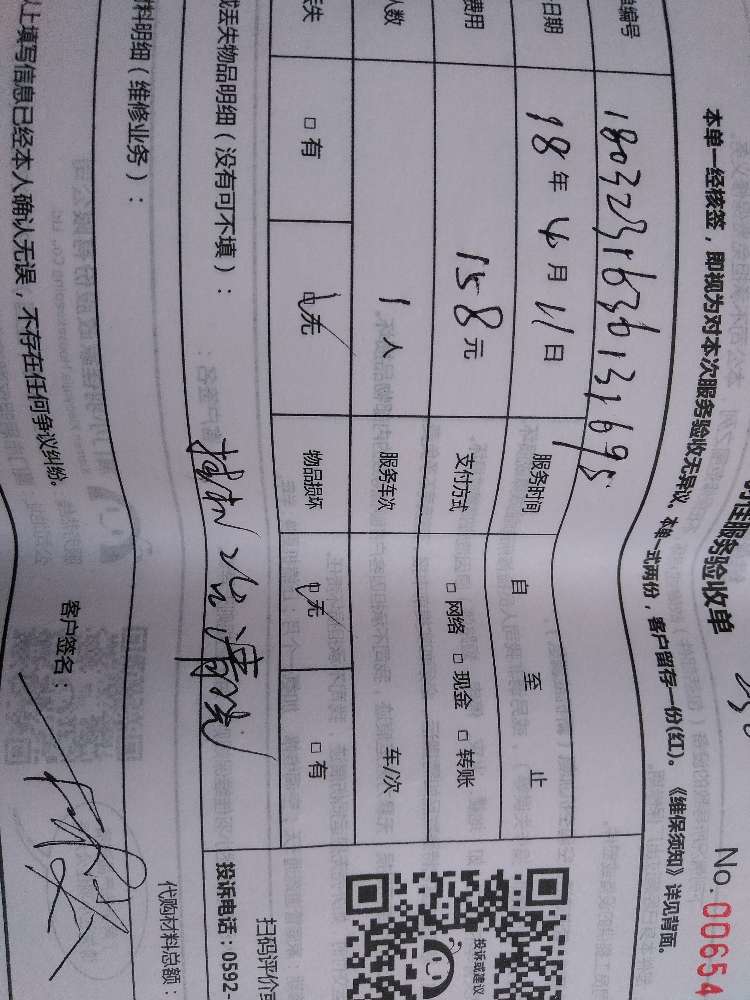 服务验收单
No. 00654
本单一经核签，即视为对本次服务验收无异议。本单一式两份，客户留存一份(红)。《维保须知》详见背面。
编号 1803231636131695
日期 18年4月11日 服务时间 自 至 止
费用 158元 支付方式 □网络 □现金 □转账
人数 1人 服务车次 车/次
失 □有 □无 物品损坏 □无 □有
或丢失物品明细（没有可不填）：
料明细（维修业务）：
代购材料总额：
以上填写信息已经本人确认无误，不存在任何争议纠纷。
客户签名：
投诉或建议
扫码评价
投诉电话：0592-